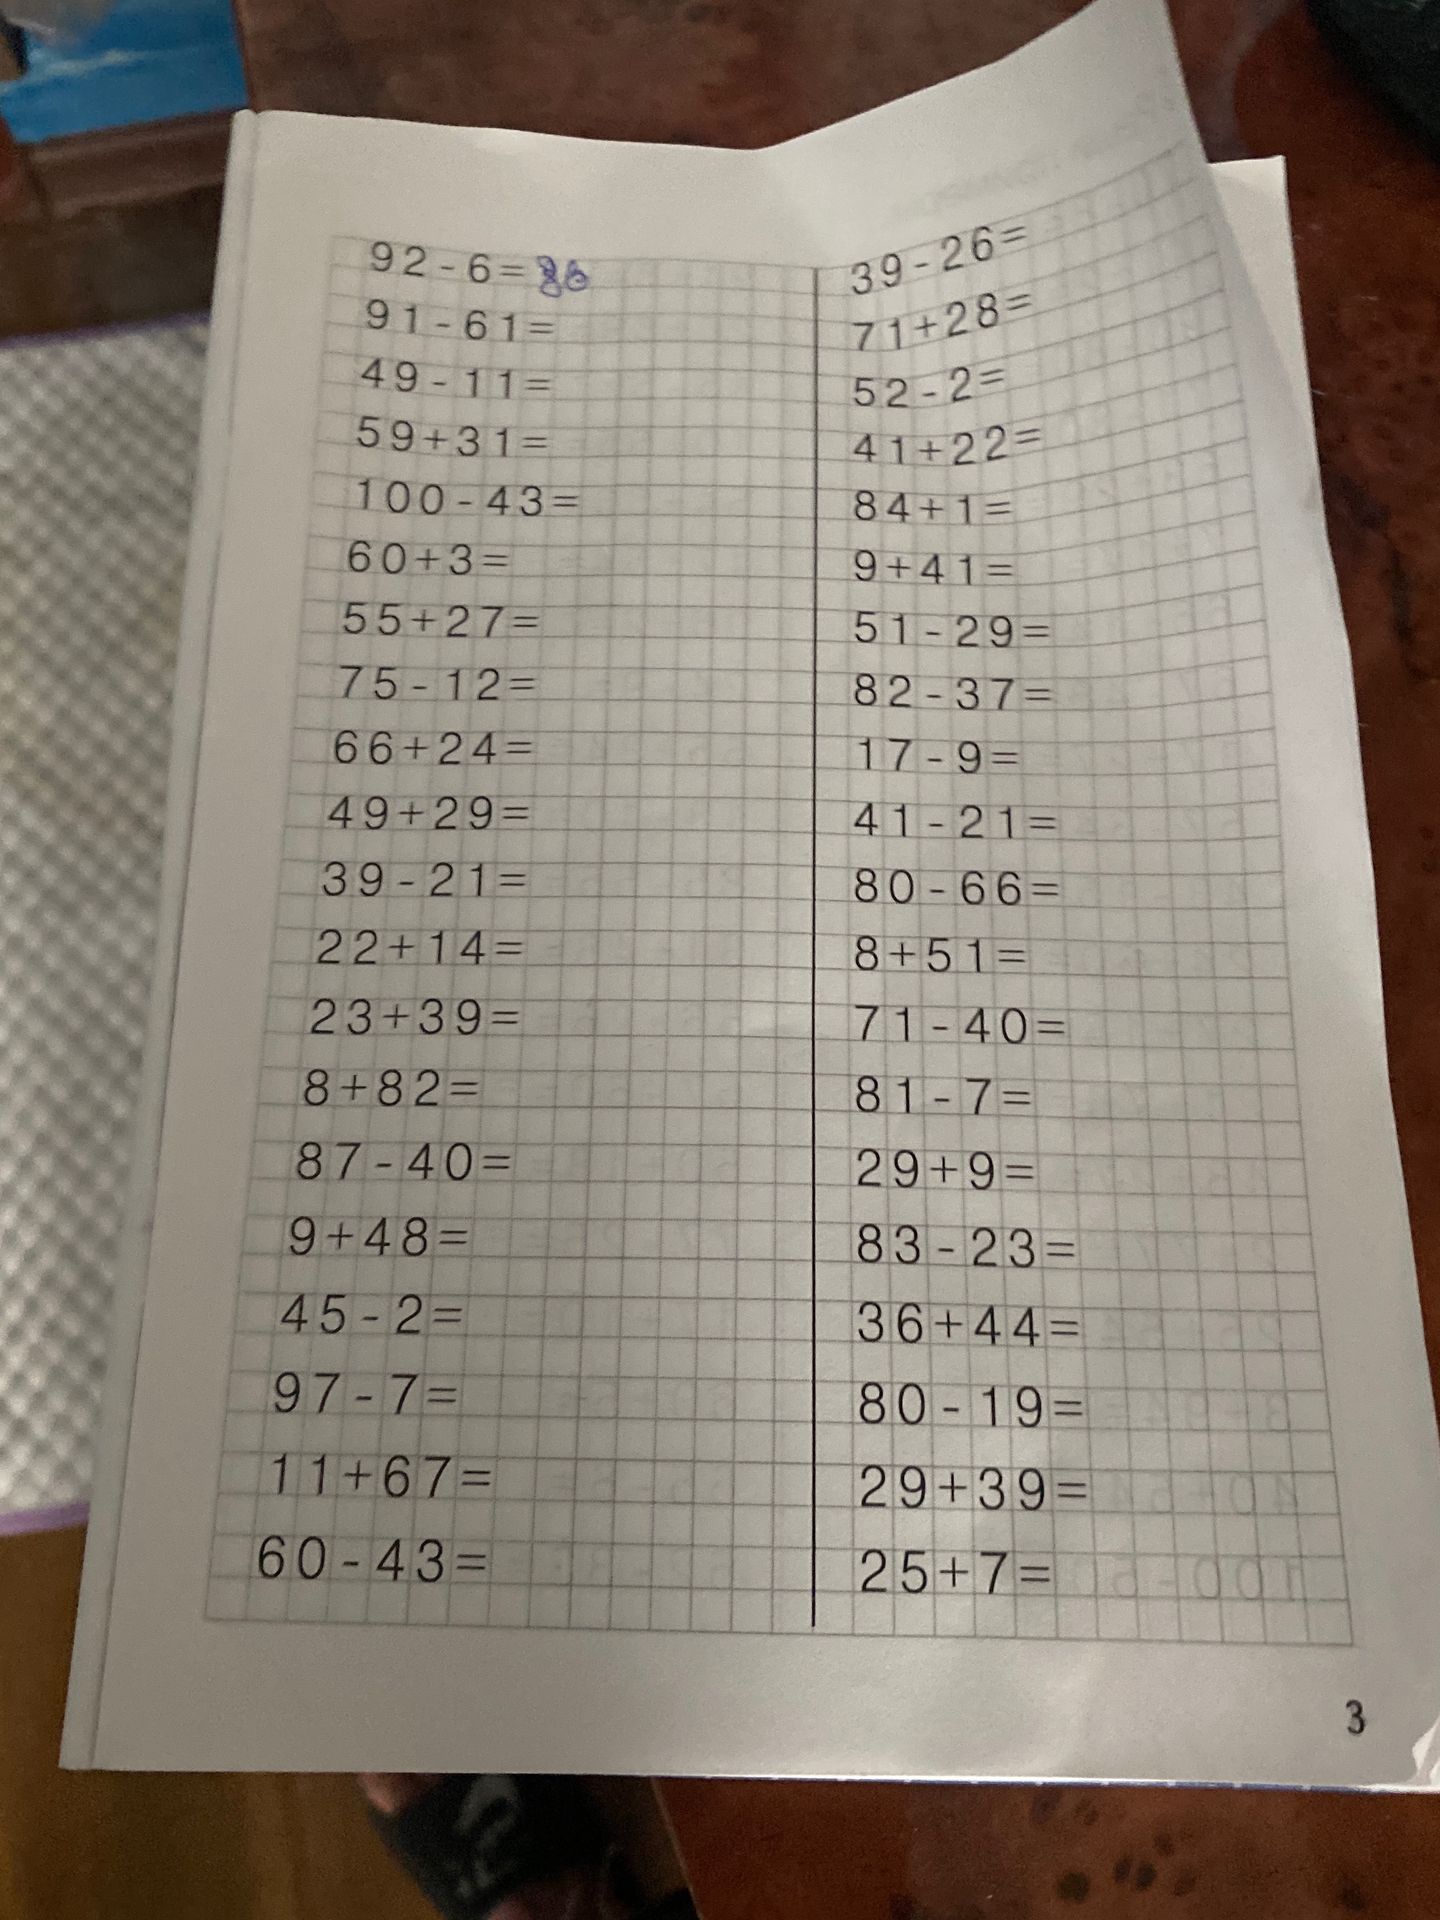 92-6=86
91-61=
49-11=
59+31=
100-43=
60+3=
55+27=
75-12=
66+24=
49+29=
39-21=
22+14=
23+39=
8+82=
87-40=
9+48=
45-2=
97-7=
11+67=
60-43=
39-26=
71+28=
52-2=
41+22=
84+1=
9+41=
51-29=
82-37=
17-9=
41-21=
80-66=
8+51=
71-40=
81-7=
29+9=
83-23=
36+44=
80-19=
29+39=
25+7=
3